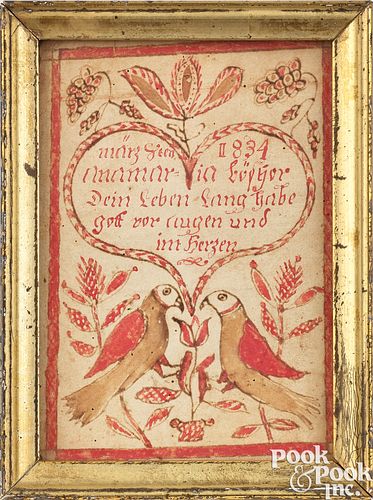 März 1834
anamar=ia Löscher
Dein Leben Lang habe
gott vor augen und
im Herzen
POOK
& POOK
INC.